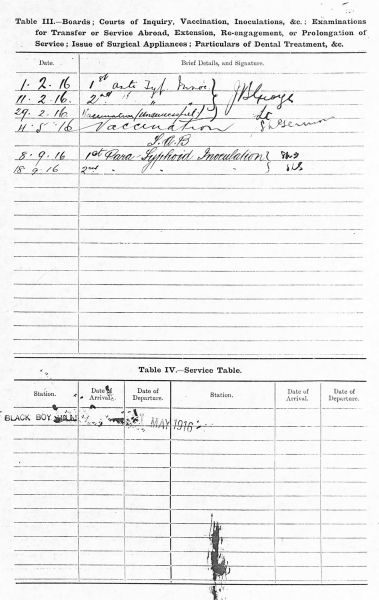 Table III.—Boards; Courts of Inquiry, Vaccination, Inoculations, &c.; Examinations
for Transfer or Service Abroad, Extension, Re-engagement, or Prolongation of
Service; Issue of Surgical Appliances; Particulars of Dental Treatment, &c.
Date. Brief Details, and Signature.
1. 2. 16 1st Anti Typ. Innoc
11. 2. 16 2nd " " "
29. 2. 16 Vaccination (Unsuccessful)
4. 5. 16 Vaccination
T.A.B
8. 9. 16 1st Para Typhoid Inoculation
18 9. 16 2nd " " "
Table IV.—Service Table.
Station. Date of Arrival. Date of Departure. Station. Date of Arrival. Date of Departure.
BLACK BOY MAY 1916